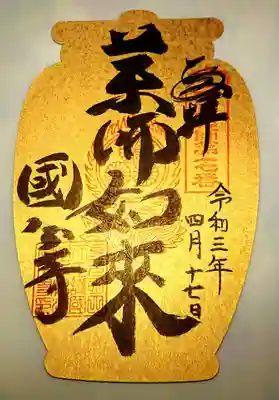 奉拝
令和三年
四月十七日
薬師如來
國分寺